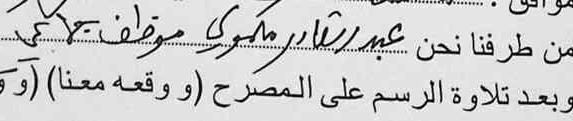 من طرفنا نحن عبد القادر مكموي موظف جماعي
وبعد تلاوة الرسم على المصرح (و وقعه معنا) (و